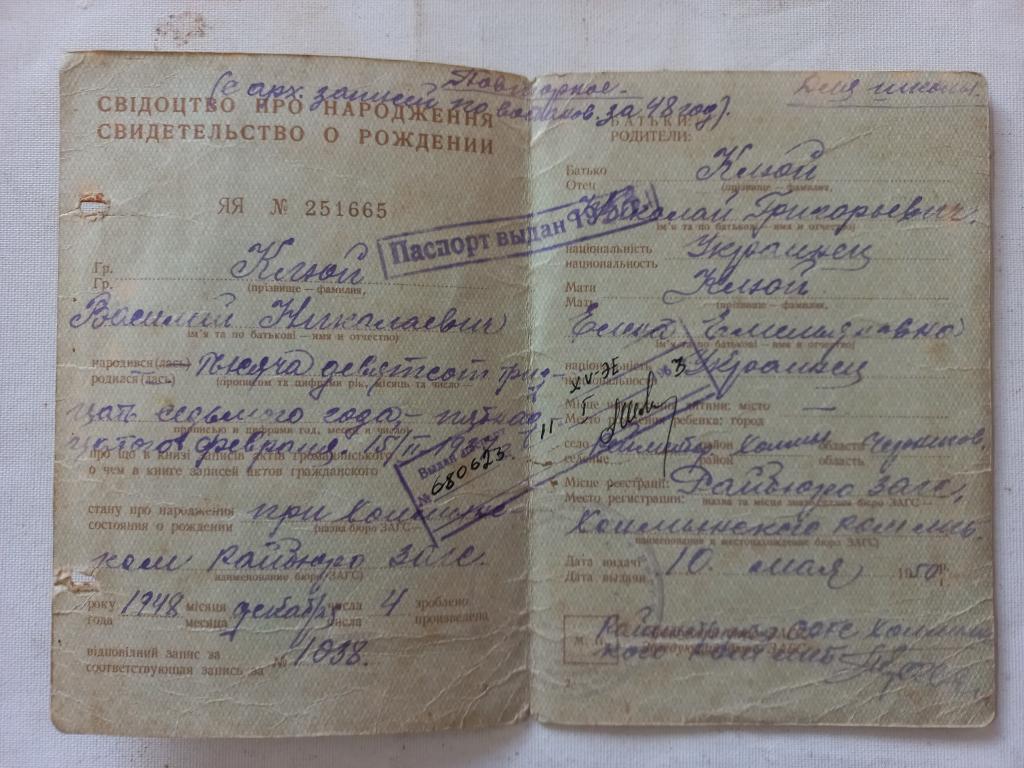 Повторное
(с арх. записей по восстанов. за 48 год).
СВІДОЦТВО ПРО НАРОДЖЕННЯ
СВИДЕТЕЛЬСТВО О РОЖДЕНИИ
ЯЯ № 251665
Паспорт выдан 19
Гр. Клюй
Гр. (прізвище – фамилия,
Василий Николаевич
ім'я та по батькові – имя и отчество)
народився (лась) тысяча девятсот трид-
родился (лась) (прописом та цифрами рік, місяць та число –
цать седьмого года, – пятнад
прописью и цифрами год, месяц и число)
цатого февраля 15/II 1937 года
про що в книзі записів актів громадянського
о чем в книге записей актов гражданского
Выдан
№ 680623.
стану про народження при
состояния о рождении (назва бюро ЗАГС –
ком Райбюро ЗАГС.
наименование бюро ЗАГС)
року 1948 місяця декабря числа 4 зроблено
года месяца числа произведена
відповідний запис за
соответствующая запись за № 1038.
Для школы.
БАТЬКИ:
РОДИТЕЛИ:
Батько Клюй
Отец (прізвище – фамилия,
Николай Григорьевич
ім'я та по батькові – имя и отчество)
національність Украинец
национальность
Мати Клюй
Мать (прізвище – фамилия,
Елена Емельяновна
ім'я та по батькові – имя и отчество)
національність Украинец
национальность
Місце народження дитини: місто —
Место рождения ребенка: город
село район Холмы область Чернигов.
селение район область
Місце реєстрації: Райбюро загс,
Место регистрации: (назва та місцезнаходження бюро ЗАГС –
Холмынского
наименование и местонахождение бюро ЗАГС)
Дата видачі 10. мая 1950 р.
Дата выдачи г.
М.